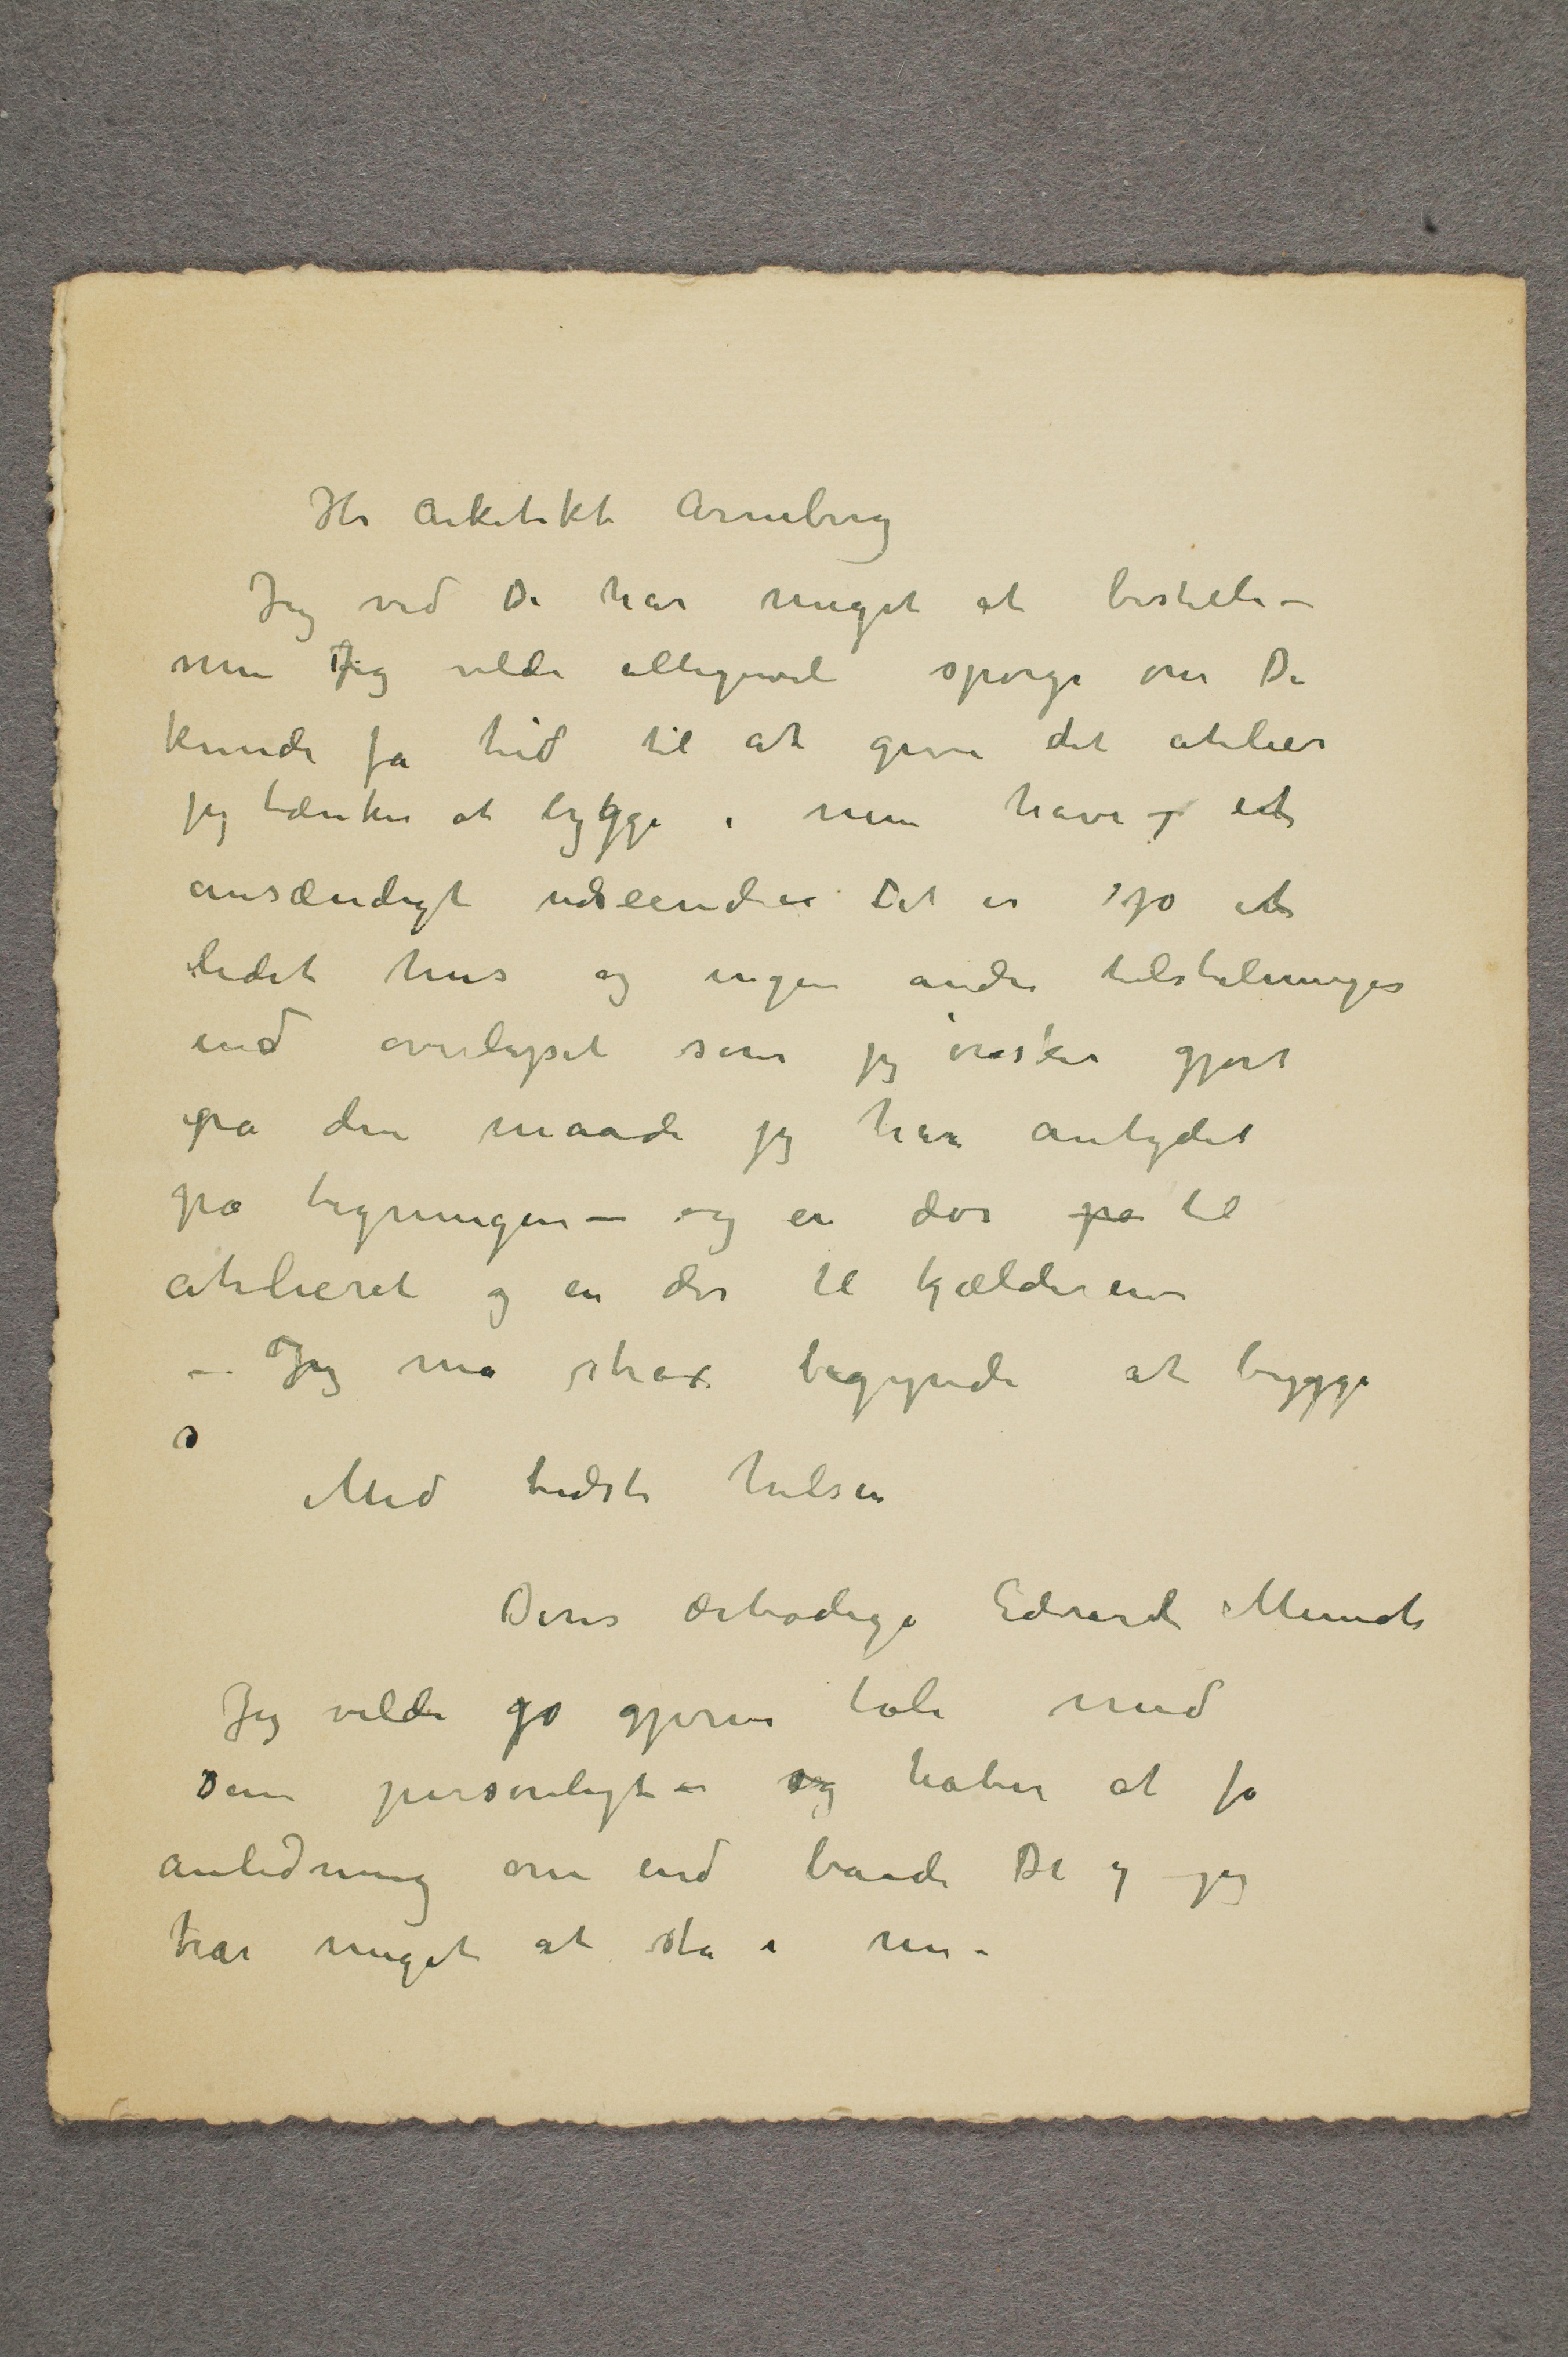 Hr Arkitekt Arneberg
Jeg ved De har meget at bestille –
men Jeg vilde alligevel spørge om De
kunde få tid til at give det atelier
jeg tænker at bygge i min have et
ansændigt udseende – Det er jo et
lidet hus og ingen andre tilstelninger
end overlyset som jeg ønsker gjort
på den maade jeg har antydet
på tegningen – og en dør på til
atelieret og en dør til kjælderen
– Jeg må strax begynde at bygge
Med bedste hilsen
Deres ærbødige Edvard Munch
Jeg vilde jo gjerne tale med
Dem personligt – og håber at få
anledning om end baade De og jeg
har meget at stå i nu –